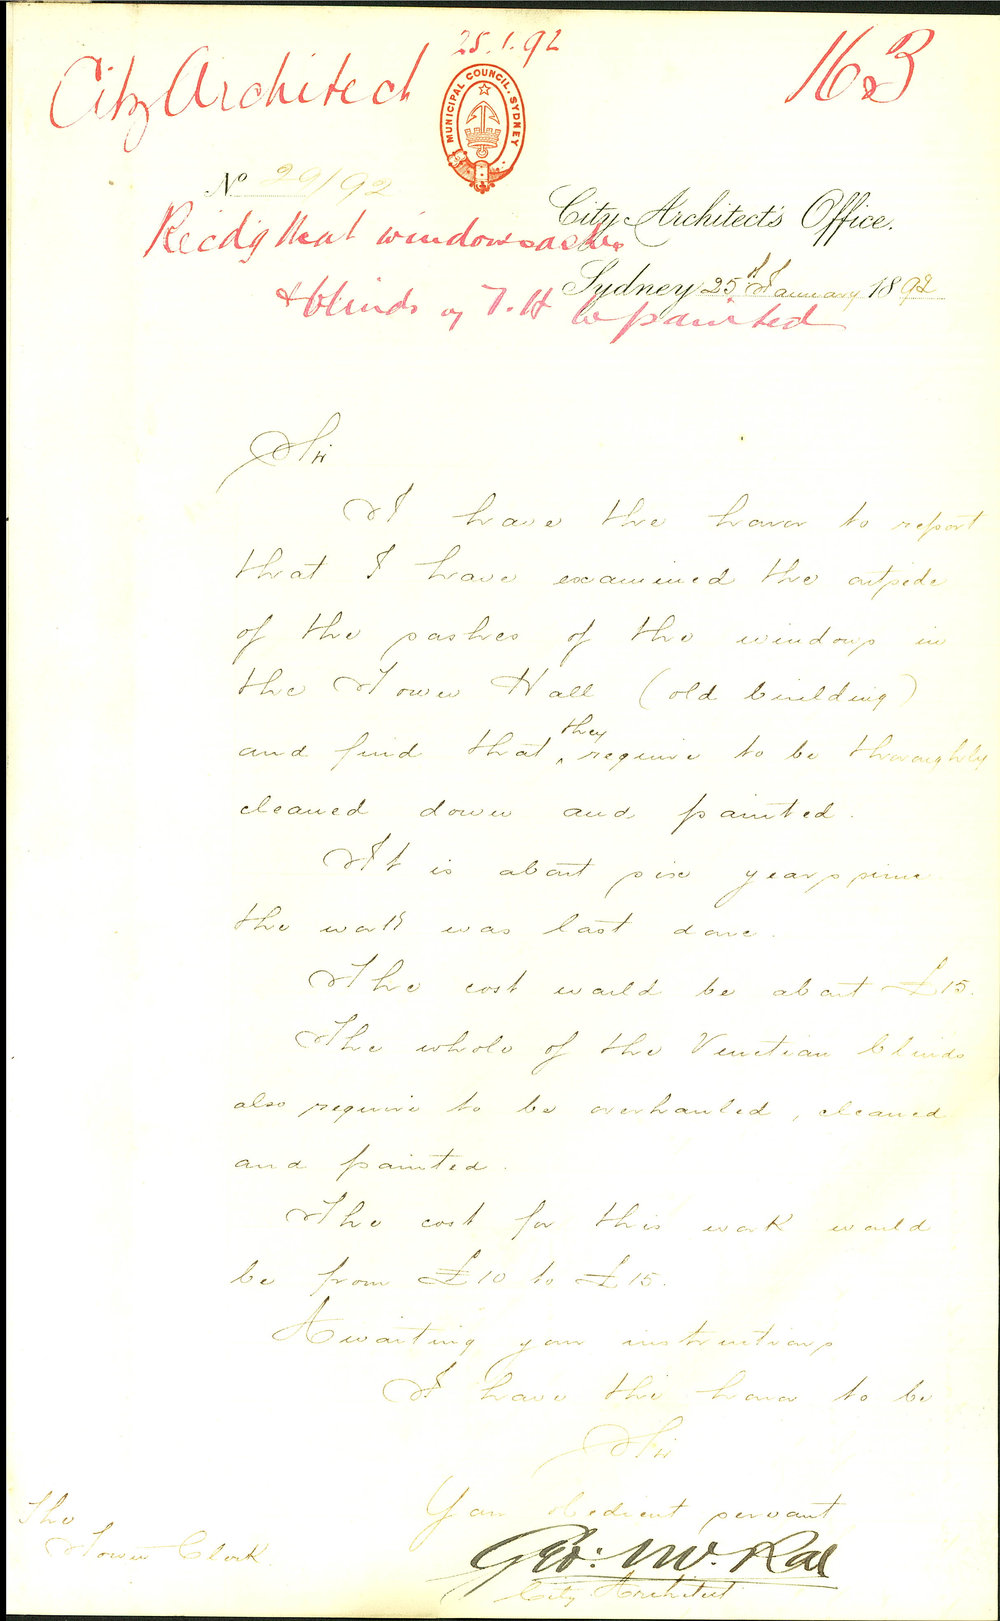 City Architect
25.1.92
163
MUNICIPAL COUNCIL. SYDNEY
No 29/92
City Architect's Office.
Recdg that window sashes
Sydney 25th January 1892
& blinds of T.H be painted
Sir
I have the honor to report
that I have examined the outside
of the sashes of the windows in
the Town Hall (old building)
and find that they require to be thoroughly
cleaned down and painted.
It is about six years since
the work was last done.
The cost would be about £15.
The whole of the Venetian blinds
also require to be overhauled, cleaned
and painted.
The cost for this work would
be from £10 to £15.
Awaiting your instructions
I have the honor to be
Sir
Your obedient servant
Geo: McRae
City Architect
The
Town Clerk